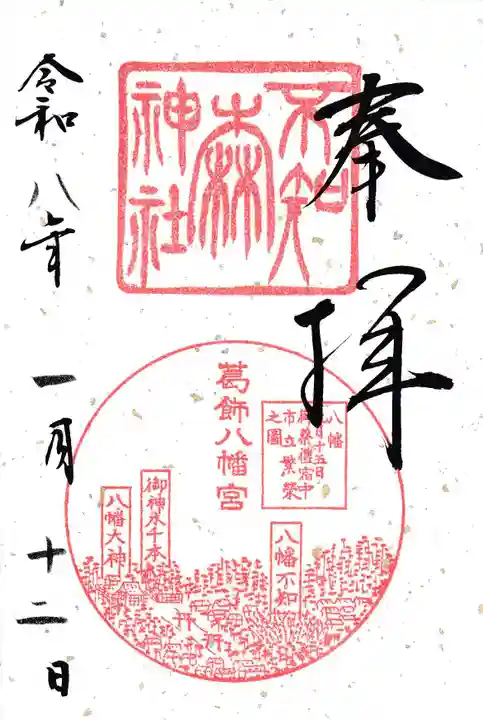 奉拝
不知
森
神社
葛飾八幡宮
八幡
市立繁榮
之圖
八幡不知
御神木千本
八幡大神
令和八年
一月
十二日